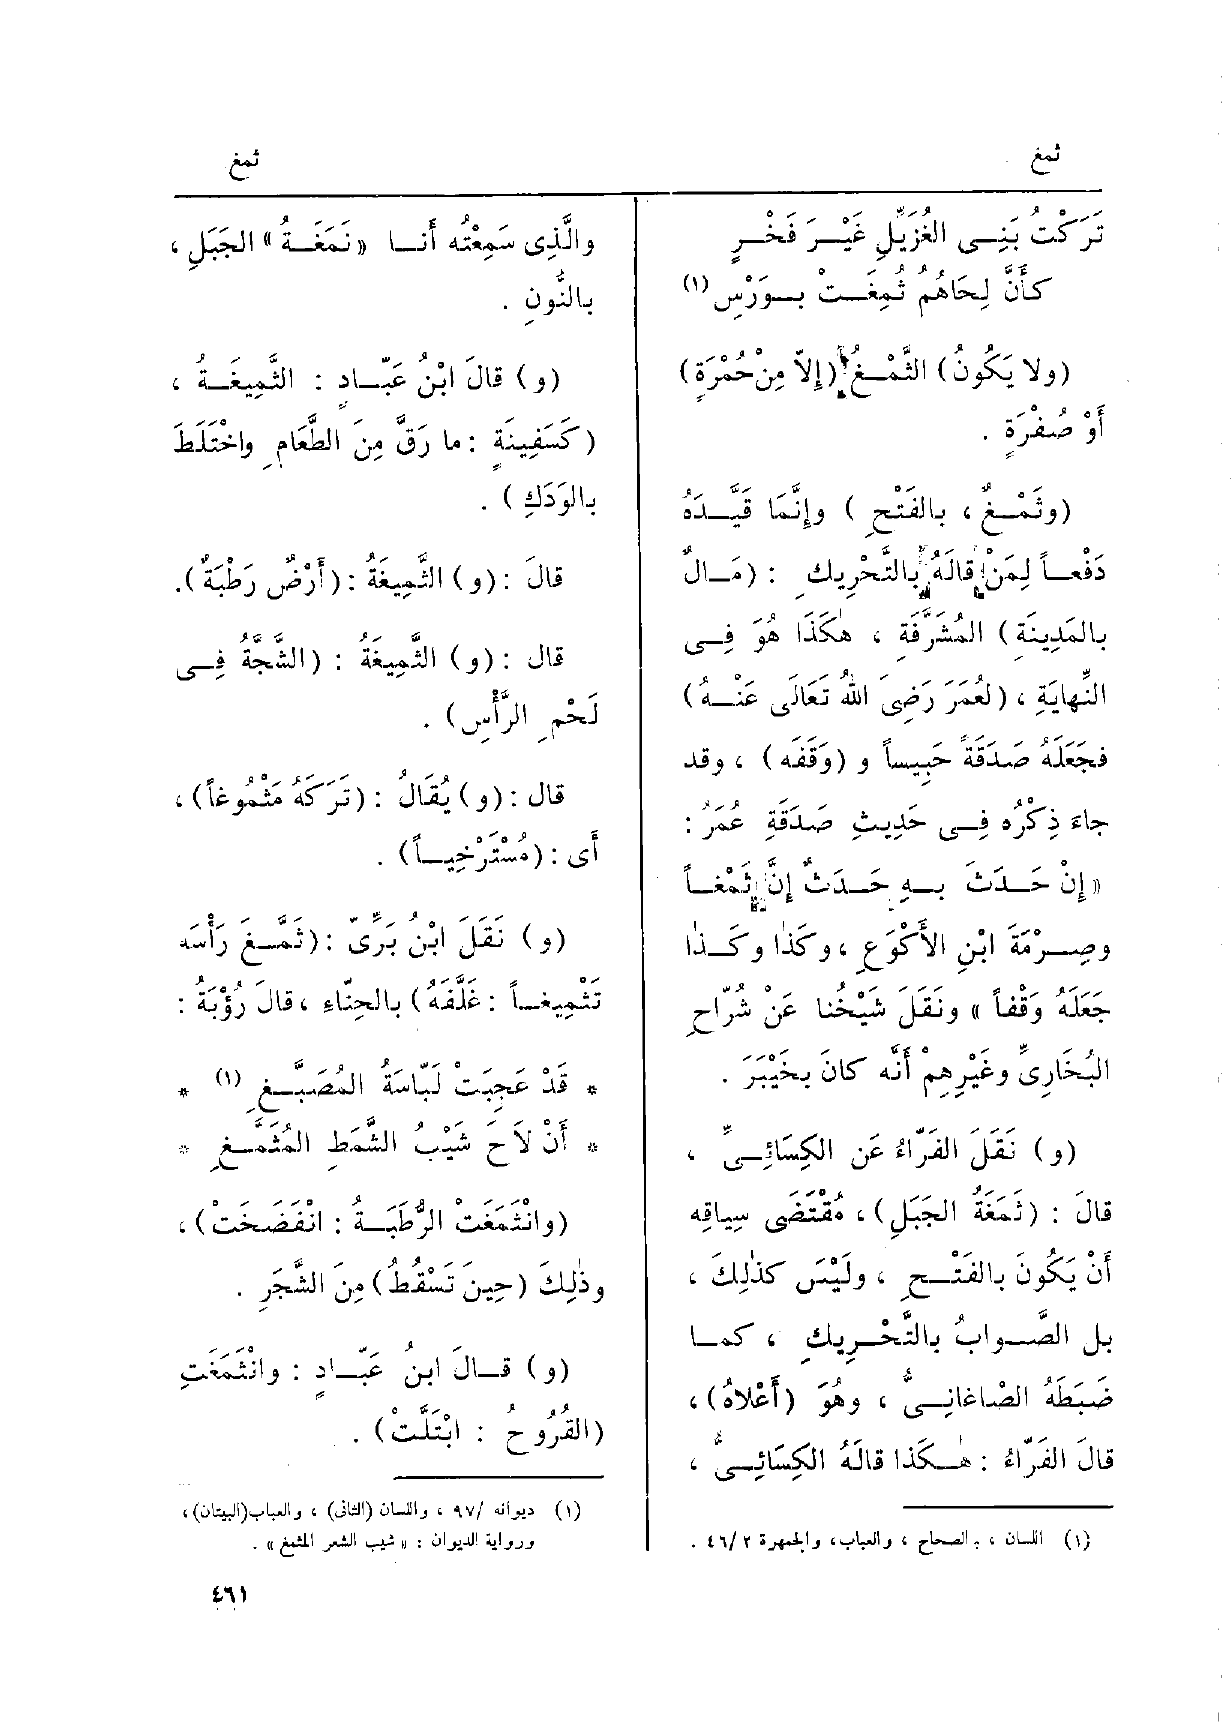 ثمغ
ثمغ
تَرَكْتُ بَنِى الغُزَيِّلِ غَيْرَ فَخْرٍ
كأَنَّ لِحَاهُمُ ثُمِغَتْ بِوَرْسِ (١)
(ولا يَكُونُ) الثَّمْغُ (إِلاّ مِنْ حُمْرَةٍ)
أَوْ صُفْرَةٍ .
(وثَمْغٌ ، بالفَتْحِ ) وإِنَّمَا قَيَّدَهُ
دَفْعاً لِمَنْ قالَهُ بالتَّحْرِيكِ : (مَالٌ
بالمَدِينَةِ) المُشَرَّفَةِ ، هٰكَذَا هُوَ فِى
النِّهايَةِ ، (لعُمَرَ رَضِىَ اللهُ تَعَالَى عَنْهُ)
فجَعَلَهُ صَدَقَةً حَبِيساً و (وَقَفَه) ، وقد
جاءَ ذِكْرُه فِى حَدِيثِ صَدَقَةِ عُمَرَ :
« إِنْ حَدَثَ بِهِ حَدَثٌ إِنَّ ثَمْغاً
وصِرْمَةَ ابْنِ الأَكْوَعِ ، وكَذَا وكَذا
جَعَلَهُ وَقْفاً » ونَقَلَ شَيْخُنا عَنْ شُرّاحِ
البُخَارِىِّ وغَيْرِهِمْ أَنَّه كانَ بخَيْبَرَ .
(و) نَقَلَ الفَرّاءُ عَن الكِسَائِىِّ ،
قالَ : (ثَمَغَةُ الجَبَلِ) ، مُقْتَضَى سِياقِه
أَنْ يَكُونَ بالفَتْحِ ، ولَيْسَ كذٰلِكَ ،
بل الصَّوابُ بالتَّحْرِيكِ ، كما
ضَبَطَهُ الصّاغانِىُّ ، وهُوَ (أَعْلاهُ) ،
قالَ الفَرّاءُ : هٰكَذا قالَهُ الكِسَائِىُّ ،
(١) اللسان ، والصحاح ، والعباب، والجمهرة ٤٦/٢ .
والَّذِى سَمِعْتُه أَنا «نَمَغَةُ» الجَبَلِ ،
بالنُّونِ .
(و) قالَ ابْنُ عَبّادٍ : الثَّمِيغَةُ ،
(كسَفِينَةٍ : ما رَقَّ مِنَ الطَّعَامِ واخْتَلَطَ
بالوَدَكِ) .
قالَ : (و) الثَّمِيغَةُ : (أَرْضٌ رَطْبَةٌ).
قال : (و) الثَّمِيغَةُ : (الشَّجَّةُ فِى
لَحْمِ الرَّأْسِ) .
قال : (و) يُقَالُ : (تَرَكَهُ مَثْمُوغاً) ،
أَى : (مُسْتَرْخِياً) .
(و) نَقَلَ ابْنُ بَرِّىّ : (ثَمَّغَ رَأْسَه
تَثْمِيغاً : غَلَّفَهُ) بالحِنّاءِ ، قالَ رُؤْبَةُ :
* قَدْ عَجِبَتْ لَبّاسَةُ المُصَبَّغِ (١) *
* أَنْ لاَحَ شَيْبُ الشَّمَطِ المُثَمَّغِ *
(وانْثَمَغَت الرُّطَبَةُ : انْفَضَخَتْ) ،
وذٰلِكَ (حِينَ تَسْقُطُ) مِنَ الشَّجَرِ .
(و) قالَ ابنُ عَبّادٍ : وانْثَمَغَتِ
(القُرُوحُ : ابْتَلَّتْ) .
(١) ديوانه /٩٧ ، واللسان (الثانى) ، والعباب(البيتان) ،
ورواية الديوان : « شيب الشعر المثمغ » .
٤٦١